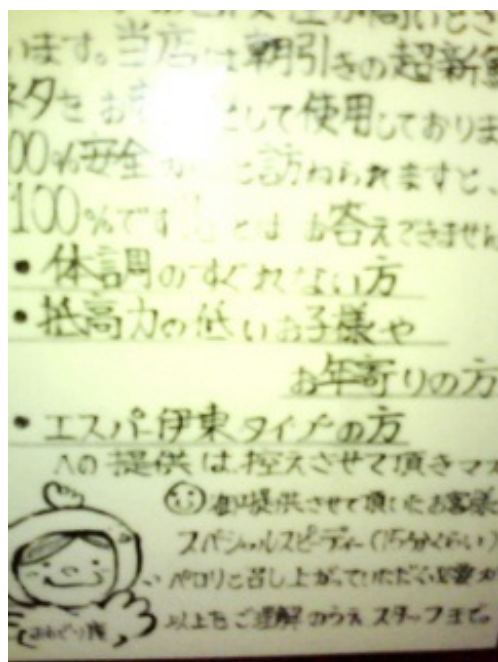 います。当店は朝引きの超新鮮
ネタを お として使用しておりま
00%安全 と訪ねられますと、
100%です とは お答えできません
・体調のすぐれない方
・抵高力の低いお子様や
お年寄りの方
・エスパー伊東タイプの方
への提供は控えさせて頂きマス
提供させて頂いたお客様
スペシャルスピーディー(15分くらい)
ペロリと召し上がっていただく必要が
以上をご理解のうえ スタッフまで。